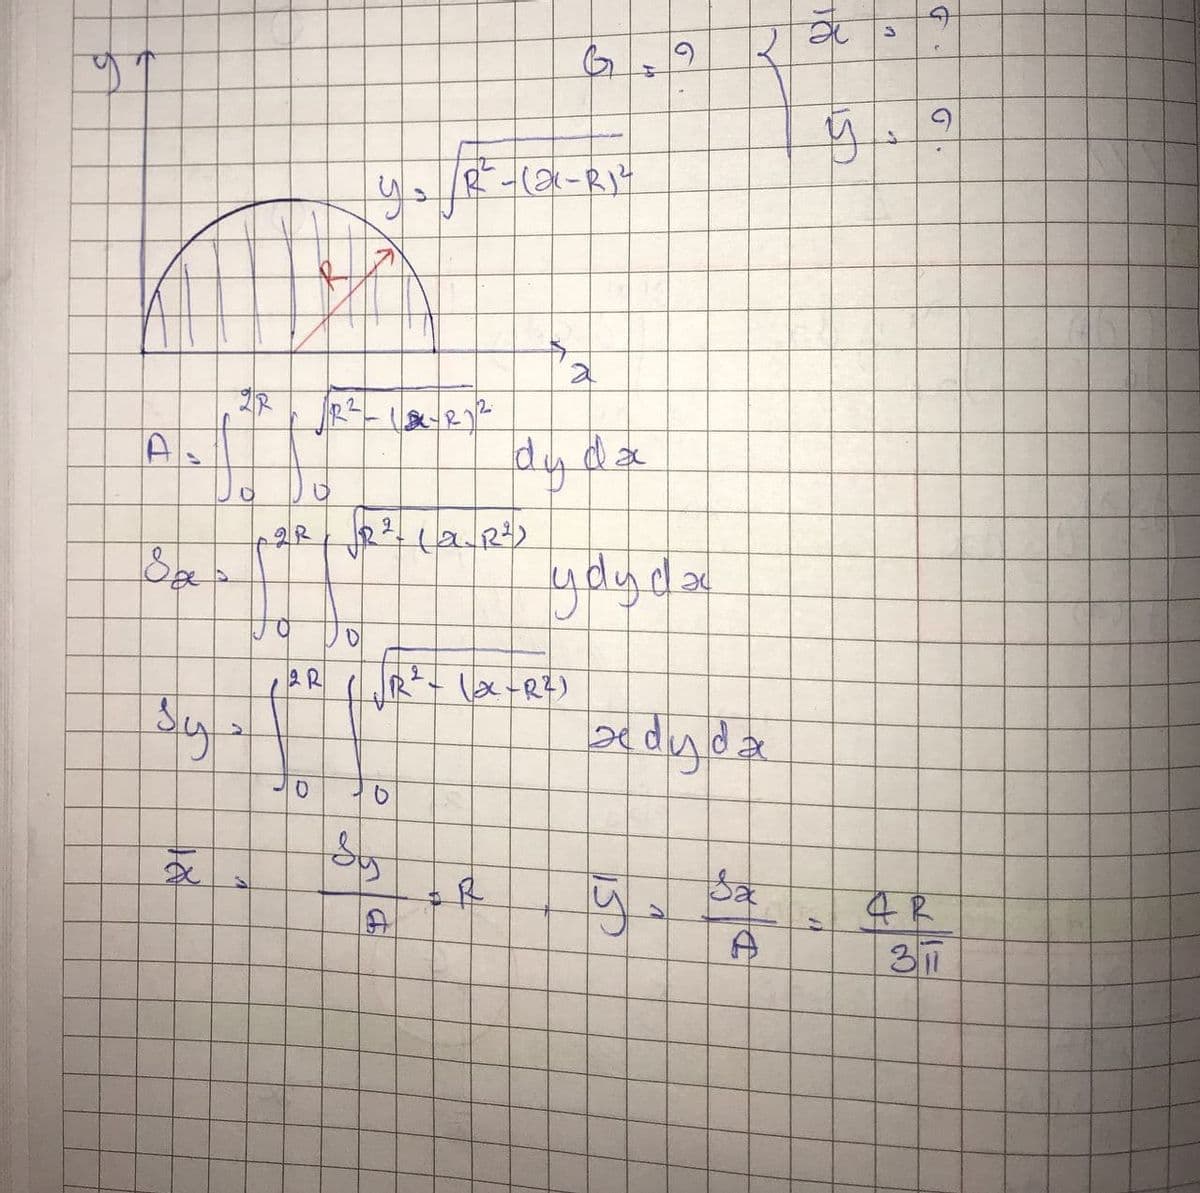 y
G = ? { x̄ = ?
ȳ = ?
y = √(R² - (x-R)²)
R
x
A = ∫₀^2R ∫₀^√(R² - (x-R)²) dy dx
Sx = ∫₀^2R ∫₀^√(R² - (x-R²)) y dy dx
Sy = ∫₀^2R ∫₀^√(R² - (x-R²)) x dy dx
x̄ = Sy/A = R , ȳ = Sx/A = 4R/3π